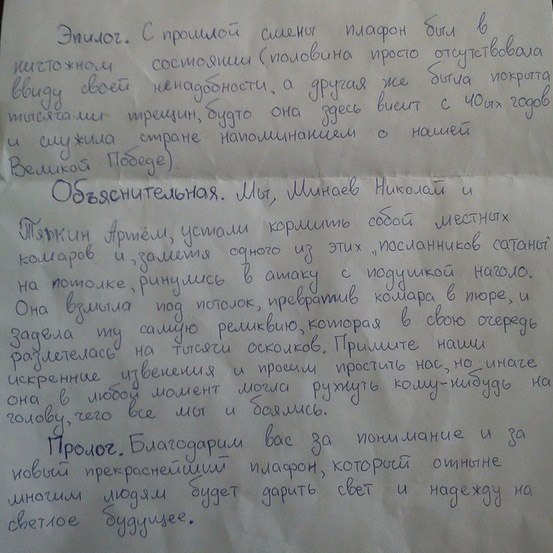 Эпилог. С прошлой смены плафон был в
ничтожном состоянии (половина просто отсутствовала
ввиду своей ненадобности, а другая же была покрыта
тысячами трещин, будто она здесь висит с 40ых годов
и служила стране напоминанием о нашей
Великой Победе)
Объяснительная. Мы, Минаев Николай и
Тяпкин Артём, устали кормить собой местных
комаров и, заметя одного из этих „посланников сатаны"
на потолке, ринулись в атаку с подушкой наголо.
Она взмыла под потолок, превратив комара в пюре, и
задела ту самую реликвию, которая в свою очередь
разлетелась на тысячи осколков. Примите наши
искренние извенения и просим простить нас, но иначе
она в любой момент могла рухнуть кому-нибудь на
голову, чего все мы и боялись.
Пролог. Благодарим вас за понимание и за
новый прекраснейший плафон, который отныне
многим людям будет дарить свет и надежду на
светлое будущее.